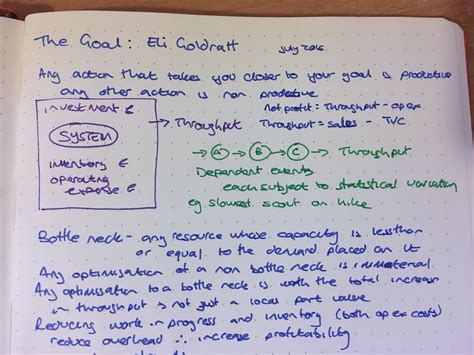 The Goal: Eli Goldratt July 2016.
Any action that takes you closer to your goal is productive
any other action is non productive
investment £
SYSTEM
inventory £
operating
expense £
→ Throughput
Net profit = Throughput - opex.
Throughput = sales - TVC
→ A → B → C → Throughput
Dependent events
each subject to statistical variation
eg slowest scout on hike
Bottle neck - any resource whose capacity is less than
or equal to the demand placed on it
Any optimisation of a non bottle neck is immaterial.
Any optimisation to a bottle neck is worth the total increase
in throughput is not just a local part value
Reducing work in progress and inventory (both opex costs)
reduce overhead ∴ increase profitability